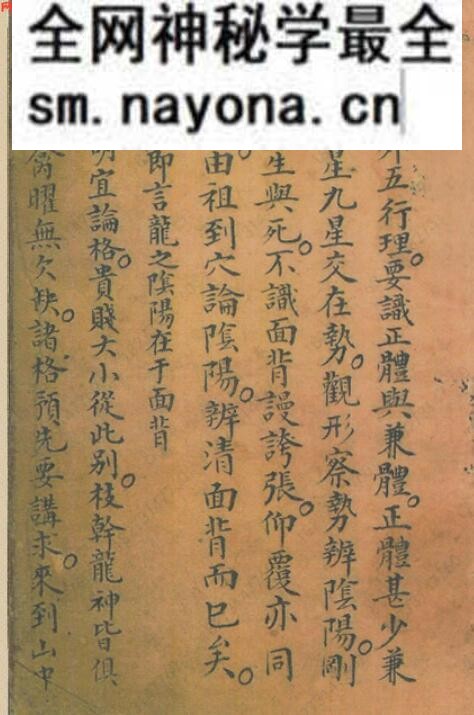 全网神秘学最全
sm.nayona.cn
五行理。要識正體與兼體。正體甚少兼
星九星交在勢。觀形察勢辨陰陽。剛
生與死。不識面背謾誇張。仰覆亦同
由祖到穴論陰陽。辨清面背而已矣。
即言龍之陰陽在于面背
明宜論格。貴賤大小從此別。枝幹龍神皆俱
曜無欠缺。諸格預先要講求。來到山中